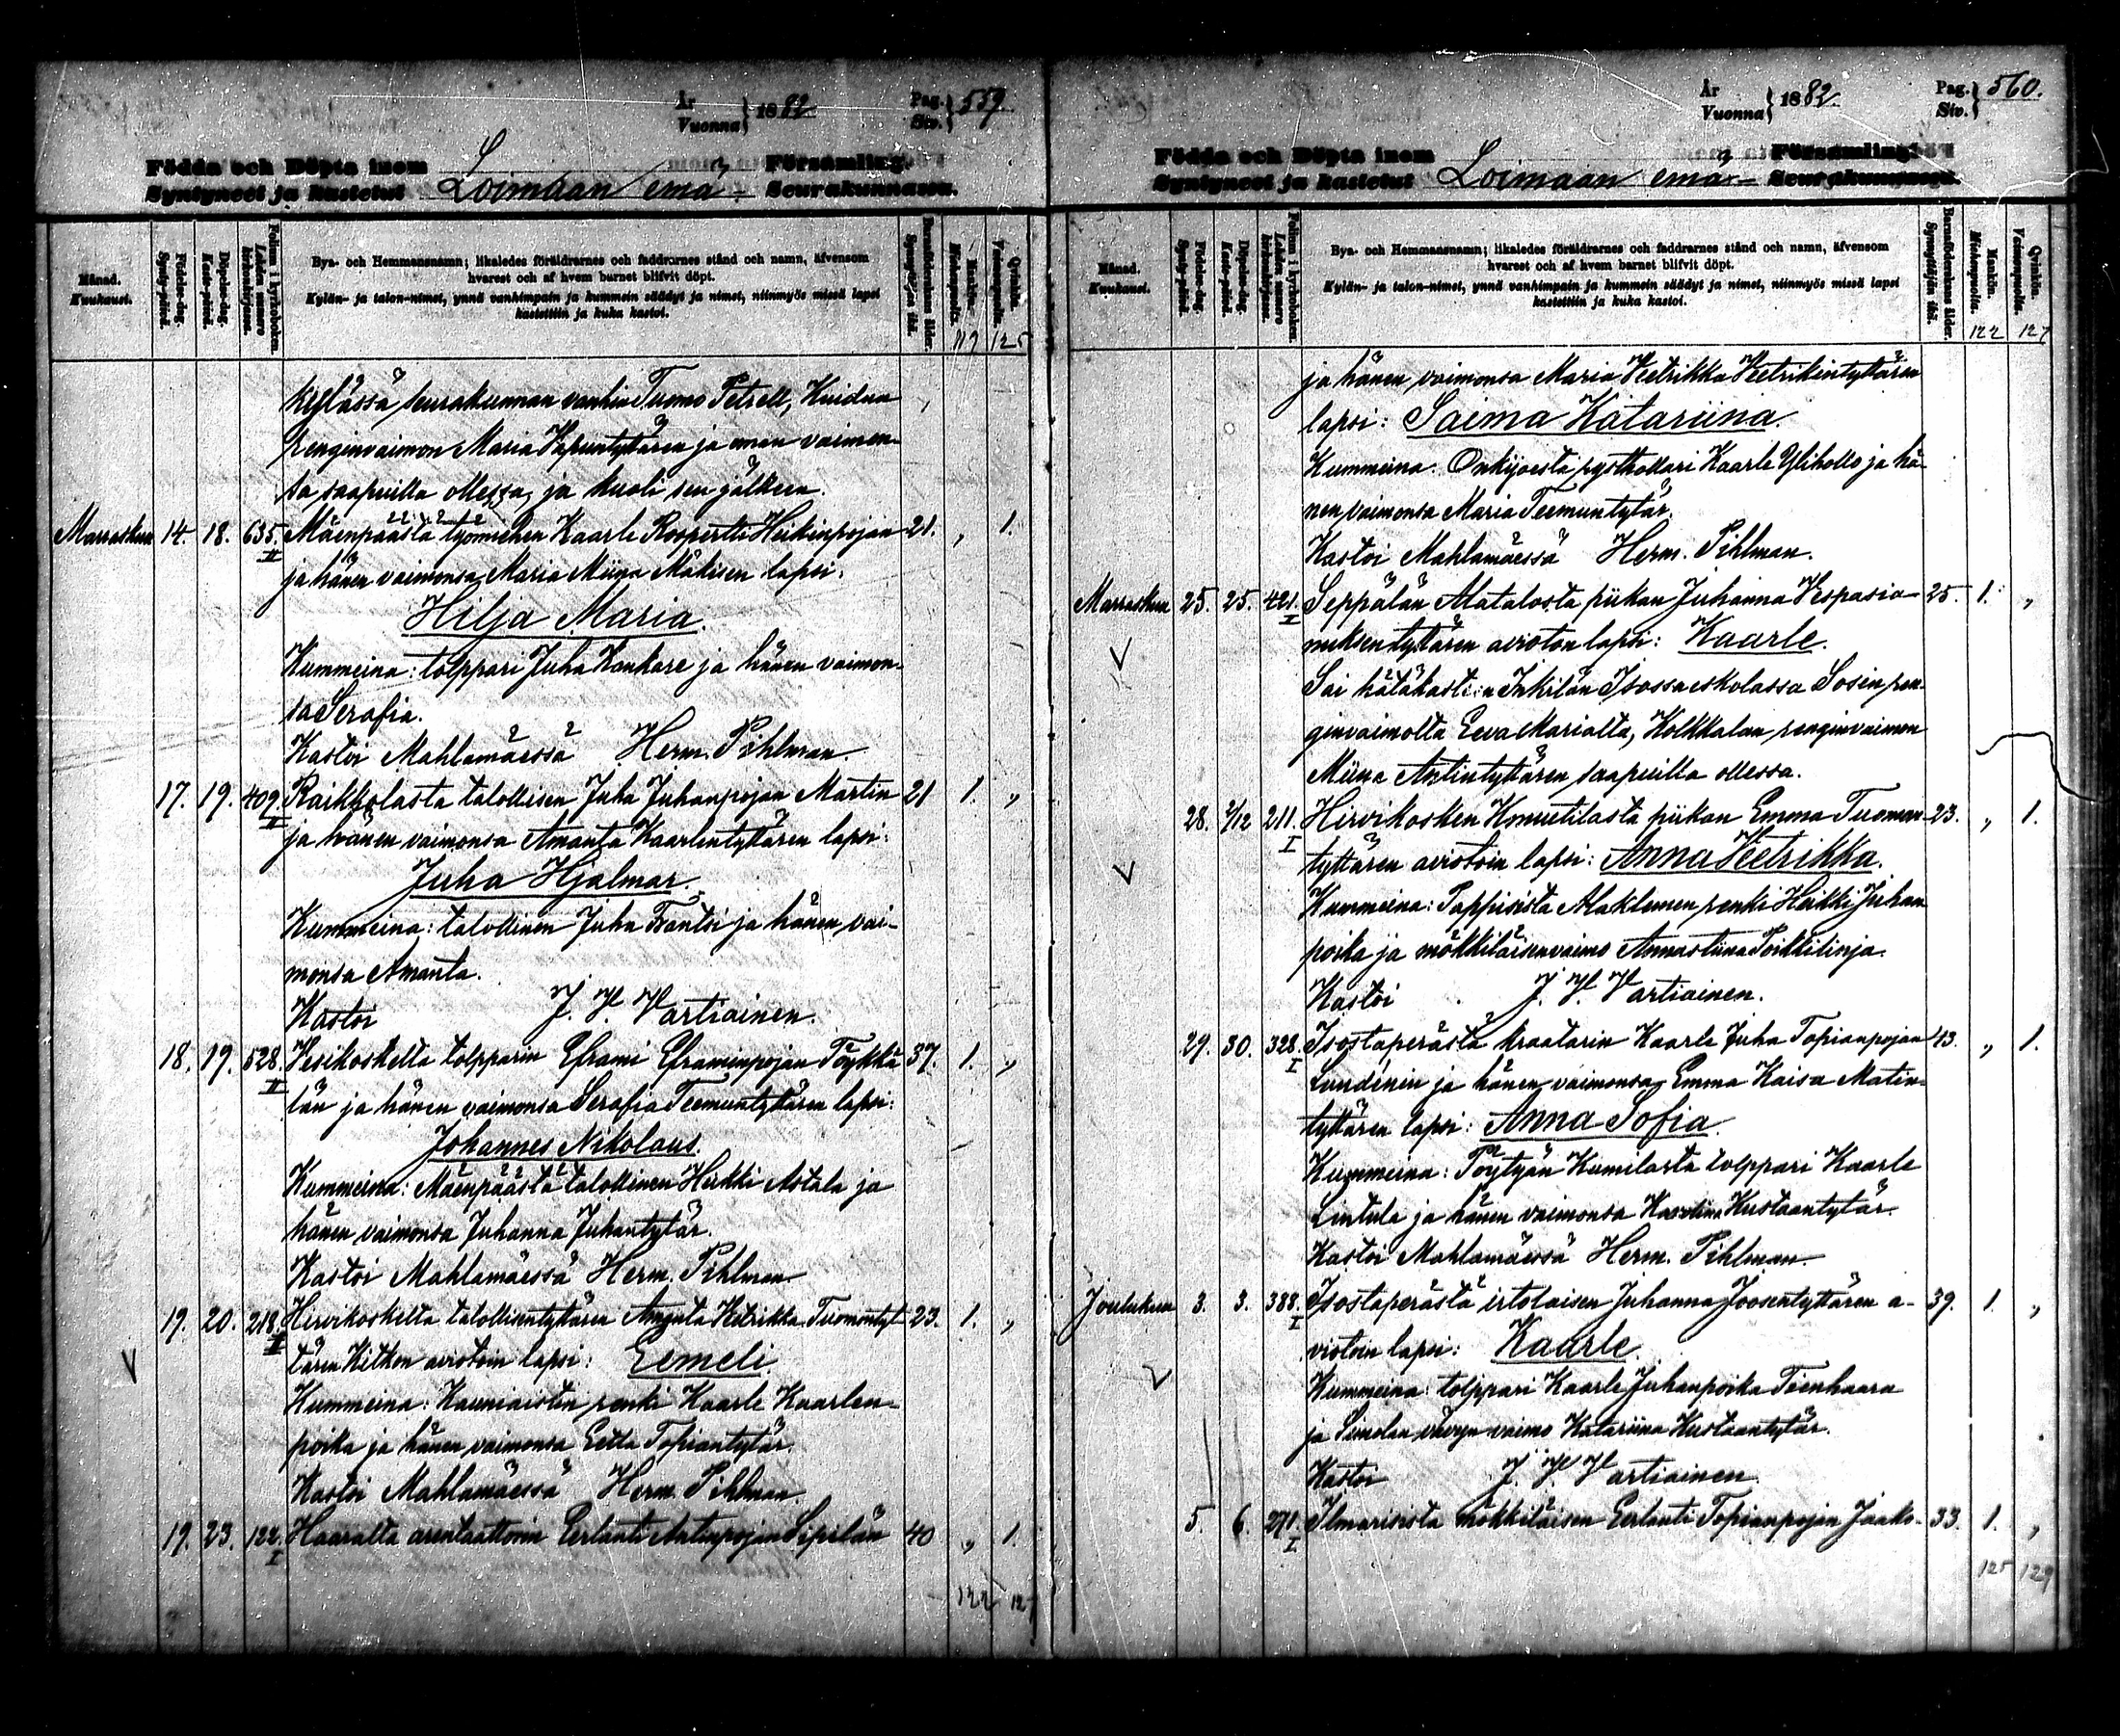 År
Vuonna } 1882
Pag.
Siv. } 559.
Födda och Döpta inom Församling.
Syntyneet ja kastetut Loimaan emä- Seurakunnassa.
Månad.
Kuukausi.
Födelse-dag.
Synty-päivä.
Döpelse-dag.
Kaste-päivä.
Folium i kyrkoboken.
Lehden numero kirkonkirjassa.
Bya- och Hemmansnamn; likaledes föräldrarnes och faddrarnes stånd och namn, äfvensom
hvarest och af hvem barnet blifvit döpt.
Kylän- ja talon-nimet, ynnä vanhimpain ja kummein säädyt ja nimet, niinmyös missä lapsi
kastettiin ja kuka kastoi.
Barnaföderskans ålder.
Synnyttäjän ikä.
Mankön.
Miehenpuolta.
Qvinkön.
Vaimonpuolta.
119 125
kylässä seurakunnan vanhin Tuomo Petrell, Knidun
renginvaimon Maria Vapuntyttären ja oman vaimon-
sa saapuilla ollessa, ja kuoli sen jälkeen.
Marraskuu 14. 18. 635. II Mäenpäästä työmiehen Kaarle Roopertti Heikinpojan 21. „ 1.
ja hänen vaimonsa Maria Miina Mäkisen lapsi:
Hilja Maria.
Kummeina: tolppari Juha Kankare ja hänen vaimon-
sa Serafia.
Kastoi Mahlamäessä Herm. Pihlman.
17. 19. 409. II Raikkolasta talollisen Juha Juhanpojan Martin 21 1. „
ja hänen vaimonsa Amanta Kaarlentyttären lapsi:
Juha Hjalmar.
Kummeina: talollinen Juha Frantsi ja hänen vai-
monsa Amanta.
Kastoi J. V. Vartiainen.
18. 19. 528. II Vesikoskelta tolpparin Eframi Eframinpojan Töykkä- 37. 1. „
län ja hänen vaimonsa Serafia Teemuntyttären lapsi:
Johannes Nikolaus.
Kummeina: Mäenpäästä talollinen Heikki Astala ja
hänen vaimonsa Juhanna Juhantytär.
Kastoi Mahlamäessä Herm. Pihlman.
19. 20. 218. Hirvikoskelta talollisentyttären Amanta Vetrikka Tuomontyt- 23. 1. „
tären Kitkon aviotoin lapsi: Eemeli.
Kummeina: Kauniaistin renki Kaarle Kaarlen-
poika ja hänen vaimonsa Eetla Topiantytär.
Kastoi Mahlamäessä Herm. Pihlman.
19. 23. 122. I Haaralta arentaattorin Eerlanti Antinpojan Sipilän 40 „ 1.
122 127
År
Vuonna } 1882
Pag.
Siv. } 560.
Födda och Döpta inom Församling
Syntyneet ja kastetut Loimaan emä- Seurakunnassa.
Månad.
Kuukausi.
Födelse-dag.
Synty-päivä.
Döpelse-dag.
Kaste-päivä.
Folium i kyrkoboken.
Lehden numero kirkonkirjassa.
Bya- och Hemmansnamn; likaledes föräldrarnes och faddrarnes stånd och namn, äfvensom
hvarest och af hvem barnet blifvit döpt.
Kylän- ja talon-nimet, ynnä vanhimpain ja kummein säädyt ja nimet, niinmyös missä lapsi
kastettiin ja kuka kastoi.
Barnaföderskans ålder.
Synnyttäjän ikä.
Mankön.
Miehenpuolta.
Qvinkön.
Vaimonpuolta.
122 127
ja hänen vaimonsa Maria Vetrikka Vetrikintyttären
lapsi: Saima Katariina.
Kummeina: Onkijoesta rysthollari Kaarle Ylihollo ja hä-
nen vaimonsa Maria Teemuntytär.
Kastoi Mahlamäessä Herm. Pihlman.
Marraskuu 25. 25. 421. I Seppälän Alatalosta piikan Juhanna Vespasia- 25. 1. „
nuksentyttären aviotoin lapsi: Kaarle.
Sai hätäkasteen Inkilän Isossaeskolassa Sosin ren-
ginvaimolta Eeva Marialta, Kolkkalan renginvaimon
Miina Antintyttären saapuilla ollessa.
28. 2/12 211. I Hirvikosken Konnitilasta piikan Emma Tuoman- 23. „ 1.
tyttären aviotoin lapsi: Anna Vetrikka.
Kummeina: Pappisista Alaklemen renki Heikki Juhan
poika ja mökkiläisenvaimo Annastiina Poikkilinja.
Kastoi J. V. Vartiainen.
29. 30. 328. I Isostaperästä kraatarin Kaarle Juha Topianpojan 43. „ 1.
Lundenin ja hänen vaimonsa Emma Kaisa Matin-
tyttären lapsi: Anna Sofia.
Kummeina: Pöytyän Kumilasta tolppari Kaarle
Lintula ja hänen vaimonsa Karolina Kustaantytär.
Kastoi Mahlamäessä Herm. Pihlman.
Joulukuu 3. 3. 388. I Isostaperästä irtolaisen Juhanna Joosentyttären a- 39. 1. „
viotoin lapsi: Kaarle.
Kummeina: tolppari Kaarle Juhanpoika Tienhaara
ja Simolan vävyn vaimo Katariina Kustaantytär.
Kastoi J. V. Vartiainen.
5. 6. 271. I Ilmarisista mökkiläisen Eerlanti Topianpojan Jaako- 33. 1. „
125 129